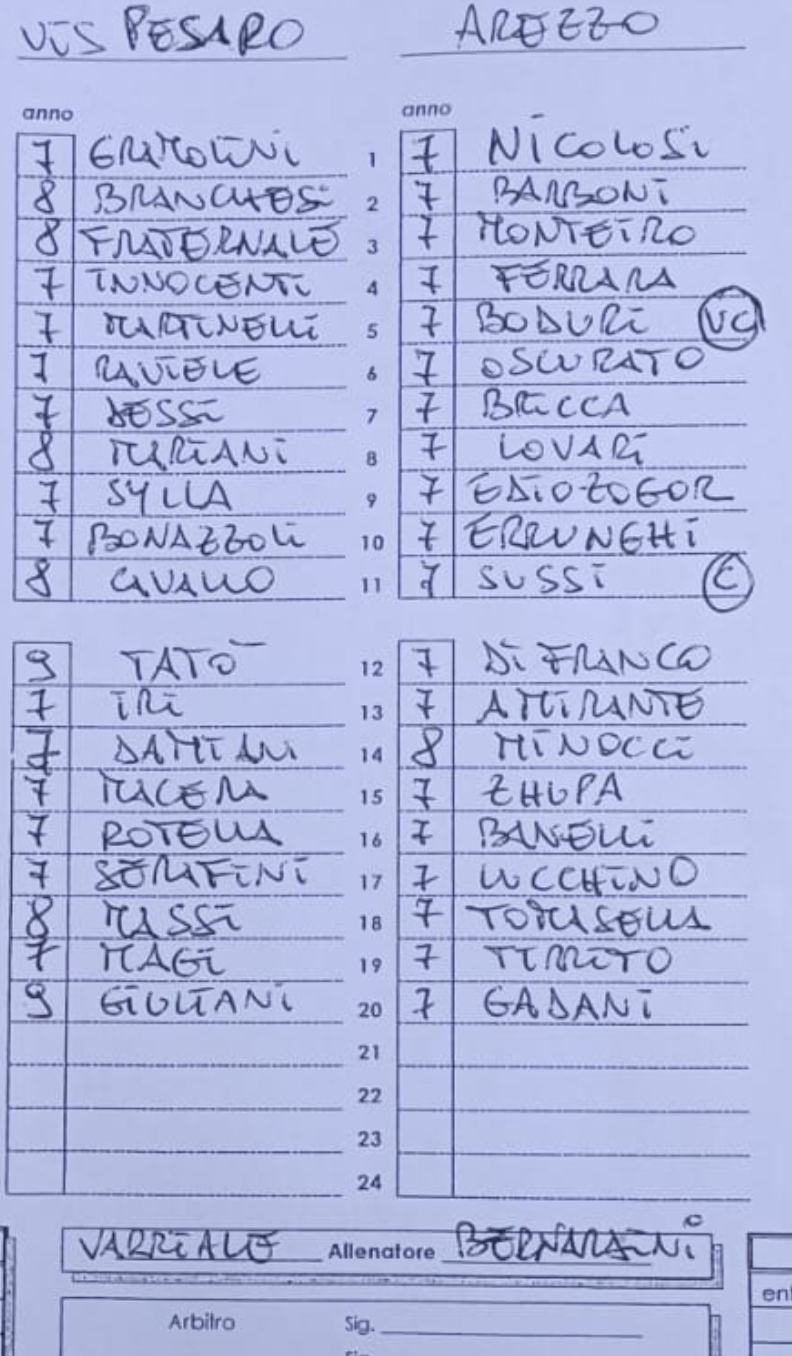 VIS PESARO AREZZO
anno anno
7 GRAMOLINI 1 7 NICOLOSI
8 BRANCHESI 2 7 BARBONI
8 FRATERNALE 3 7 MONTEIRO
7 INNOCENTI 4 7 FERRARA
7 MARTINELLI 5 7 BODURI VC
7 RAVIELE 6 7 OSCURATO
7 DESSI 7 7 BRICCA
8 MARIANI 8 7 LOVARI
7 SYLLA 9 7 EDIOZOGOR
7 BONAZZOLI 10 7 ERRUNGHI
8 CAVALLO 11 7 SUSSI C
9 TATO 12 7 DI FRANCO
7 IRI 13 7 AMIRANTE
7 DAMIANI 14 8 MINOCCI
7 MACERA 15 7 ZHUPA
7 ROTELLA 16 7 BANELLI
7 SERAFINI 17 7 LUCCHINO
8 MASSI 18 7 TOMASELLA
7 MAGI 19 7 TIRRITO
9 GIULIANI 20 7 GADANI
21
22
23
24
VARRIALE Allenatore BERNARDINI
ent
Arbitro Sig.
Sig.